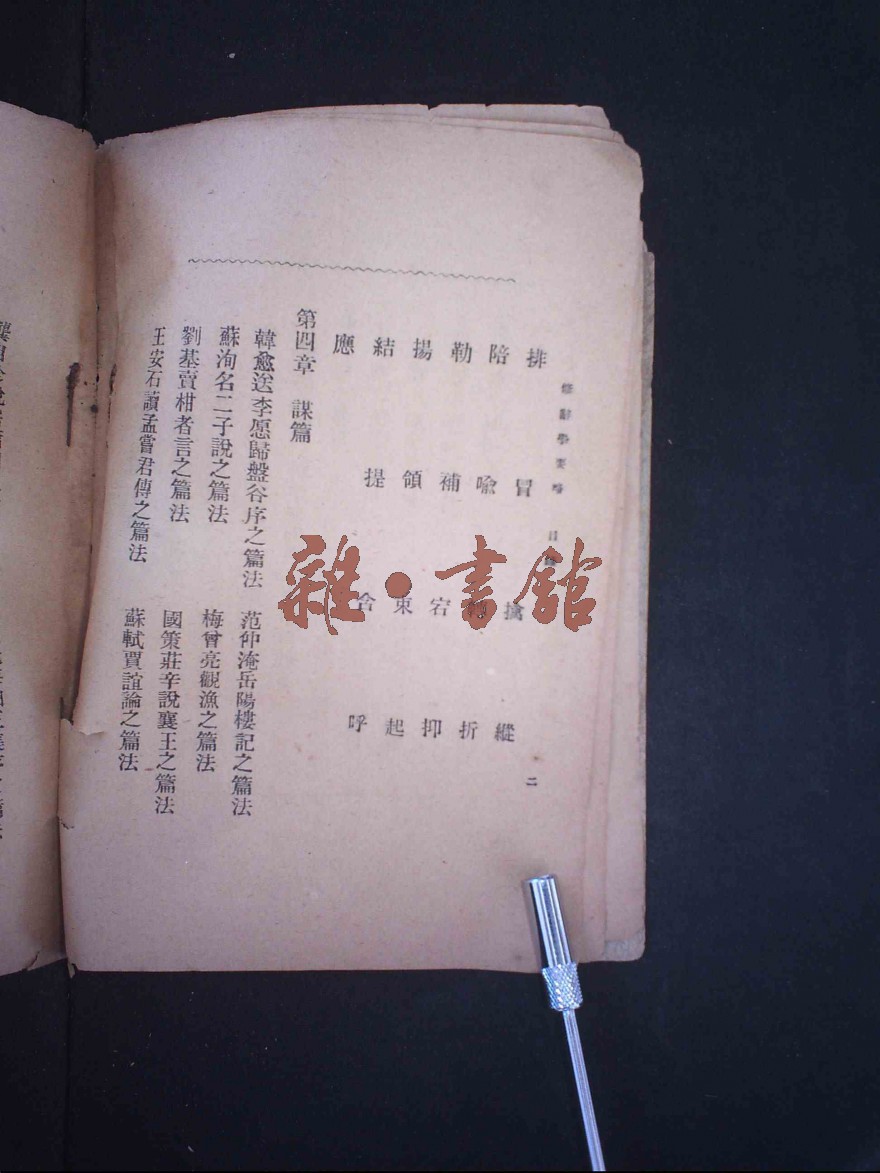 修辭學要略 目 二
排 冒 擒 縱
陪 喩 折
勒 補 宕 抑
揚 領 束 起
結 提 合 呼
應
第四章 謀篇
韓愈送李愿歸盤谷序之篇法 范仲淹岳陽樓記之篇法
蘇洵名二子說之篇法 梅曾亮觀漁之篇法
劉基賣柑者言之篇法 國策莊辛說襄王之篇法
王安石讀孟嘗君傳之篇法 蘇軾賈誼論之篇法
雜·書館